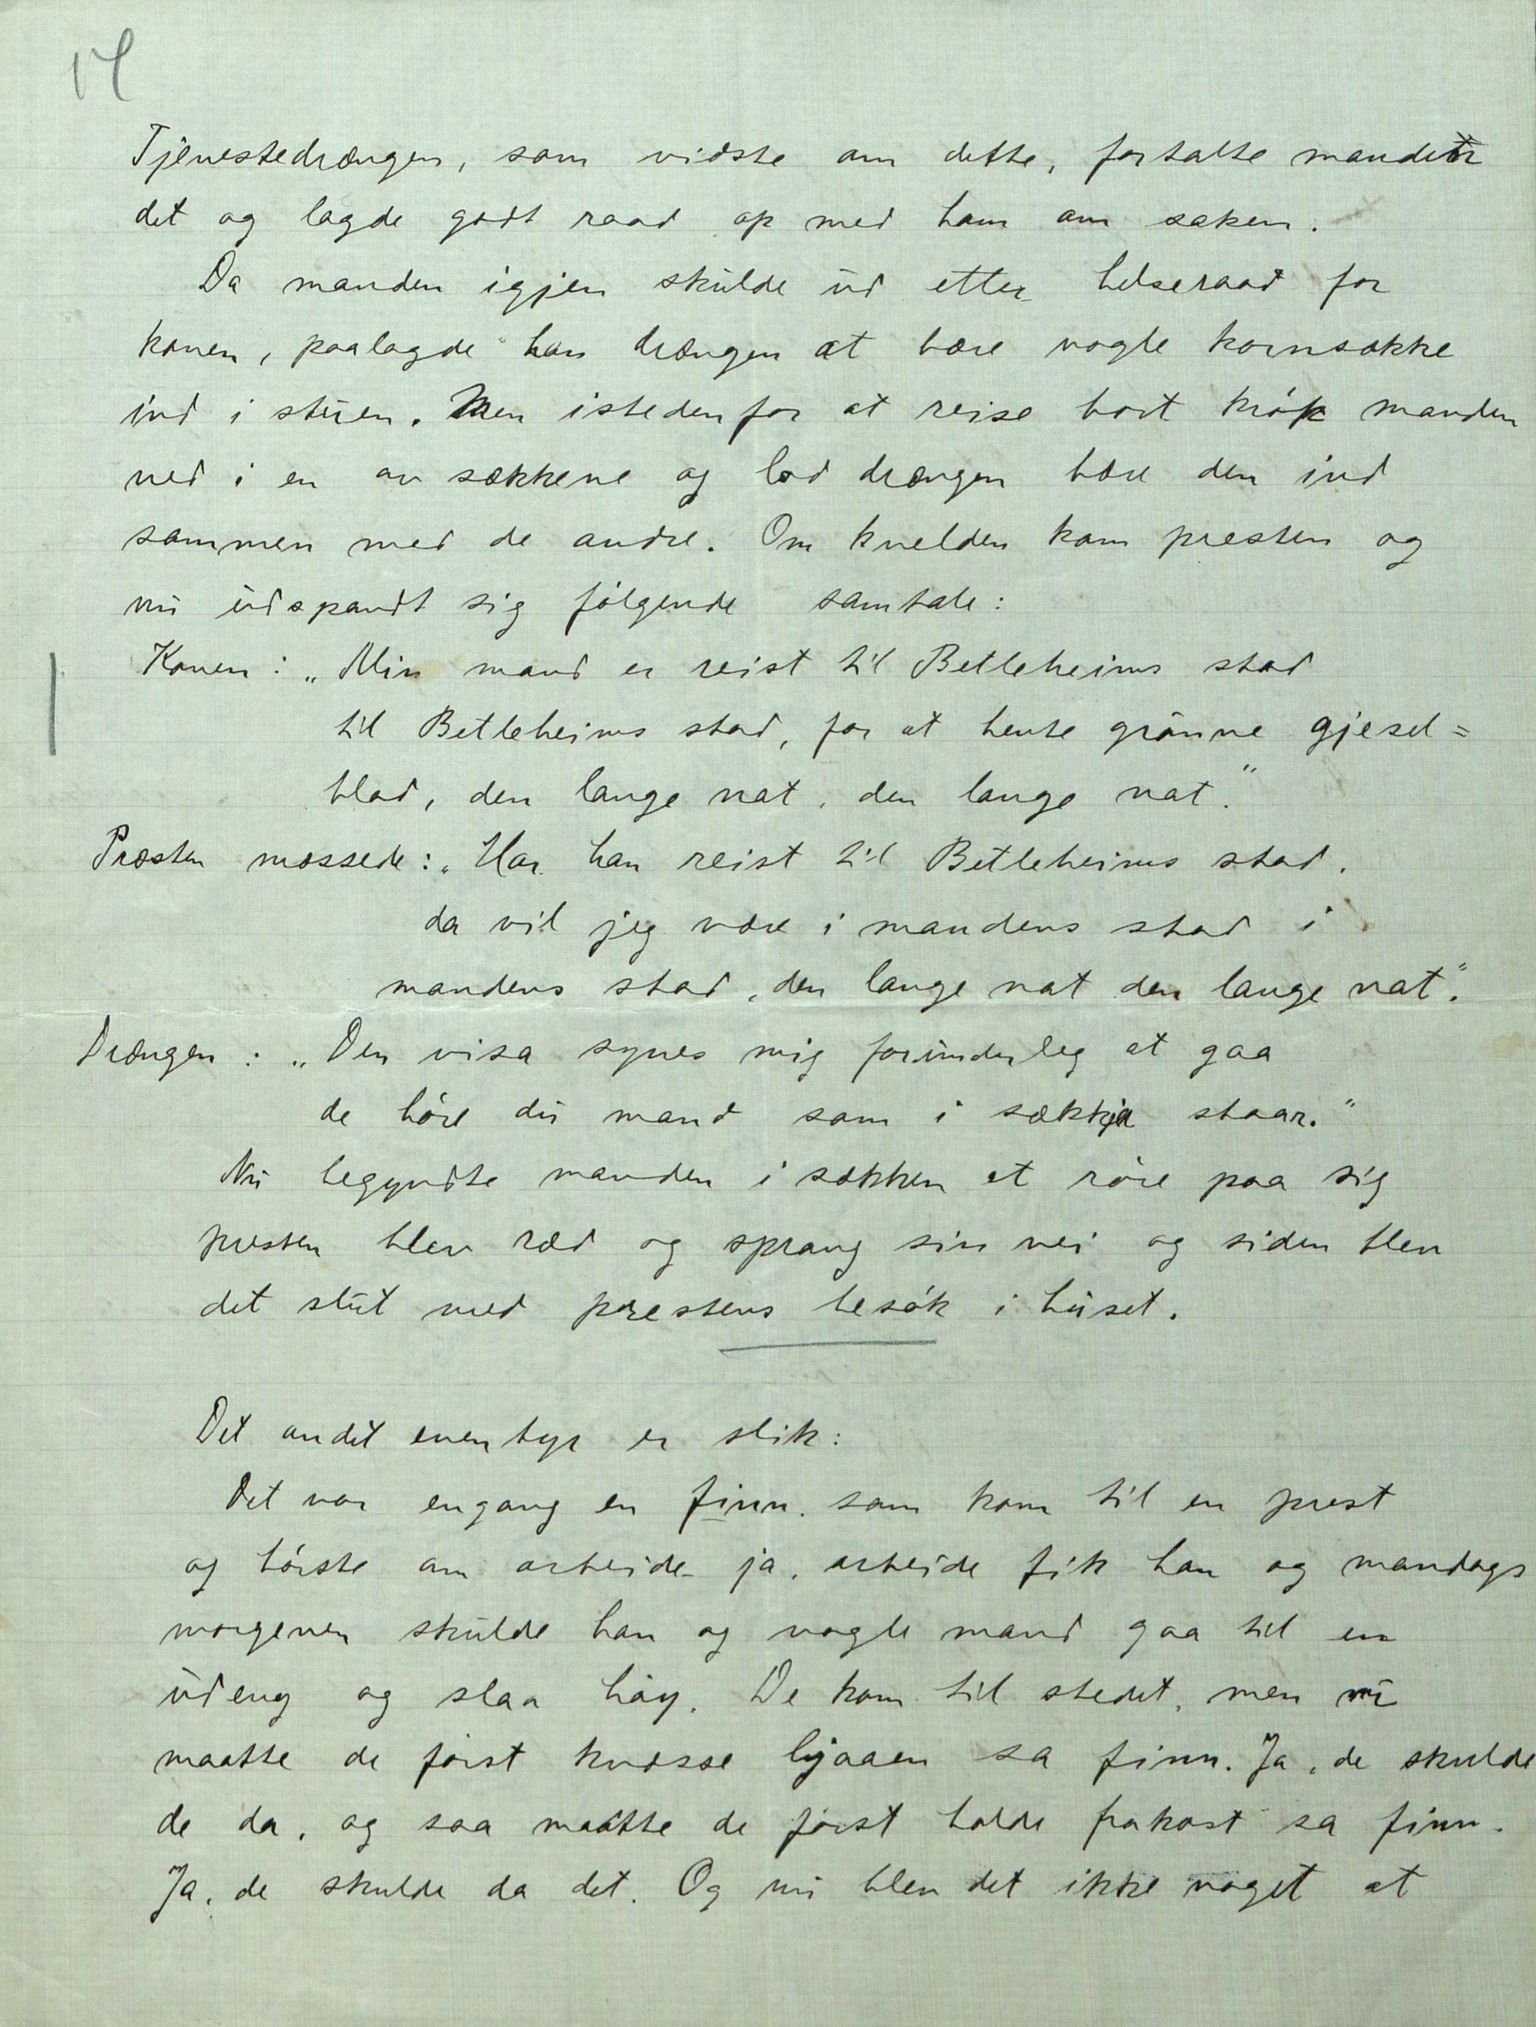 14
Tjenestedrængen, som vidste om dette, fortalte manden
det og lagde godt raad op med ham om saken.
Da manden igjen skulde ud etter helseraad for
konen, paalagde han drængen at bære nogle kornsække
ind i stuen. Men istedenfor at reise bort krøp manden
ned i en av sækkene og lod drængen bære den ind
sammen med de andre. Om kvelden kom presten og
nu udspandt sig følgende samtale:
Konen: „Min mand er reist til Betleheims stad
til Betleheims stad, for at hente grønne gjesel=
blad, den lange nat, den lange nat."
Præsten messede: „Har han reist til Betleheims stad,
da vil jeg være i mandens stad i
mandens stad, den lange nat den lange nat".
Drængen: „Den visa synes mig forunderleg at gaa
de høre du mand som i sækkja staar."
Nu begyndte manden i sækken at røre paa sig
presten blev ræd og sprang sin vei og siden blev
det slut med prestens besøk i huset.
Det andet eventyr er slik:
Det var engang en finn som kom til en prest
og hørste om arbeide ja, arbeide fik han og mandags
morgenen skulde han og nogle mand gaa til en
udeng og slaa høy. De kom til stedet, men nu
maatte de først kvæsse ljaaen sa finn. Ja, de skulde
de da, og saa maatte de først holde frokost sa finn.
Ja, de skulde da det. Og nu blev det ikke noget at